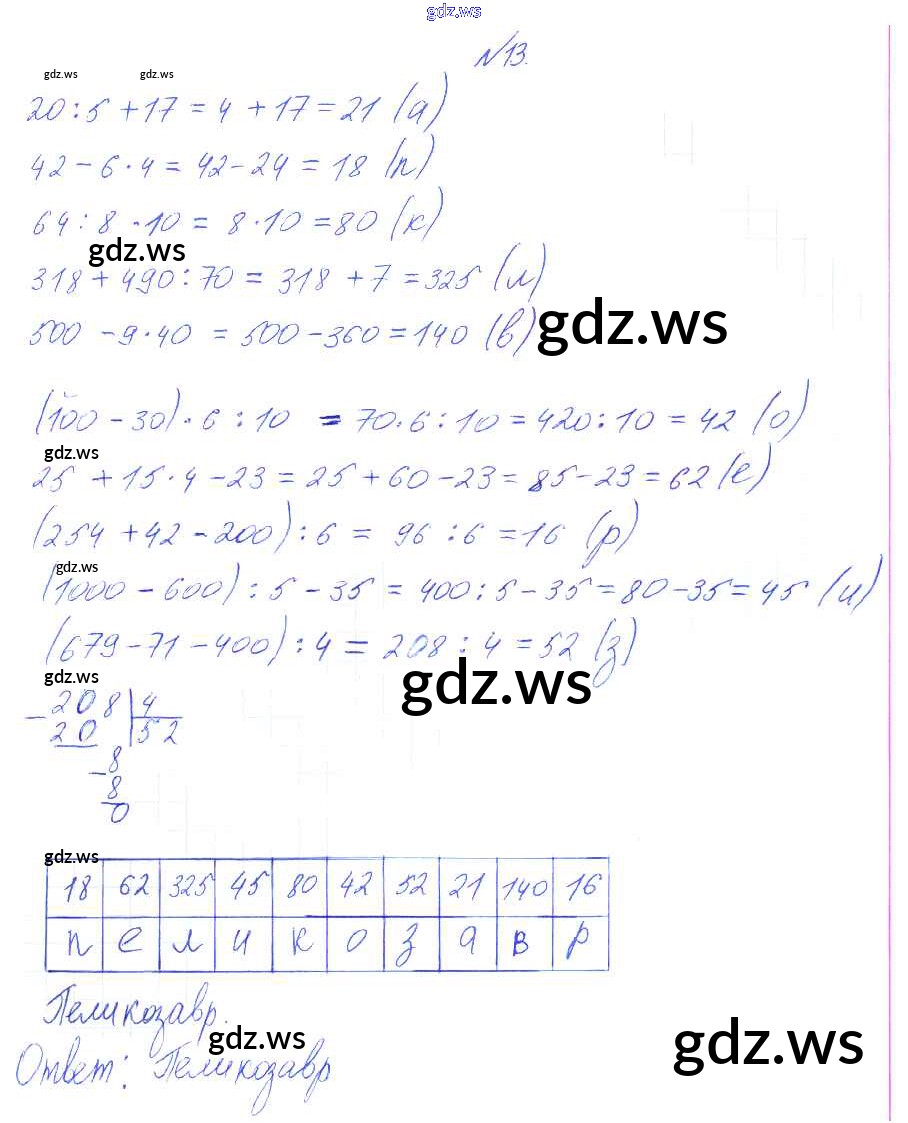 gdz.ws
№13.
gdz.ws gdz.ws
20 : 5 + 17 = 4 + 17 = 21 (а)
42 - 6 · 4 = 42 - 24 = 18 (п)
64 : 8 · 10 = 8 · 10 = 80 (к)
gdz.ws
318 + 490 : 70 = 318 + 7 = 325 (л)
500 - 9 · 40 = 500 - 360 = 140 (в)
gdz.ws
(100 - 30) · 6 : 10 = 70 · 6 : 10 = 420 : 10 = 42 (о)
gdz.ws
25 + 15 · 4 - 23 = 25 + 60 - 23 = 85 - 23 = 62 (е)
(254 + 42 - 200) : 6 = 96 : 6 = 16 (р)
gdz.ws
(1000 - 600) : 5 - 35 = 400 : 5 - 35 = 80 - 35 = 45 (и)
(679 - 71 - 400) : 4 = 208 : 4 = 52 (з)
gdz.ws gdz.ws
- 208 | 4
20 | 52
- 8
8
0
gdz.ws
18 62 325 45 80 42 52 21 140 16
п е л и к о з а в р
Пеликозавр.
gdz.ws gdz.ws
Ответ: Пеликозавр